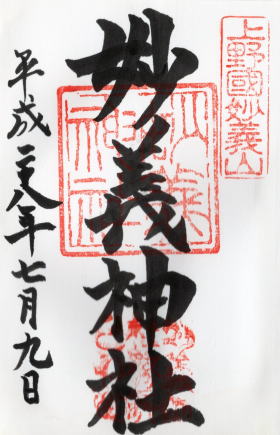 上野國妙義山
妙義神社
平成二十八年七月九日